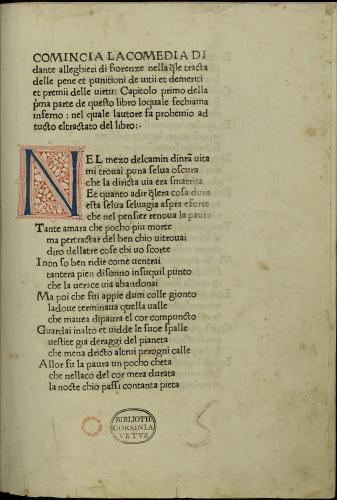 COMINCIA LA COMEDIA DI
dante alleghieri di fiorenze nella q̃le tracta
delle pene et punitioni de uitii et demeriti
et premii delle uirtu: Capitolo primo della
p̃ma parte de questo libro loquale sechiama
inferno : nel quale lautore fa prohemio ad
tucto eltractato del libro:·
NEL mezo delcamin dinr̃a uita
mi trouai puna selua oscura
che la diricta uia era smarrita
Et quanto adir q̃lera cosa dura
esta selua seluagia aspra eforte
che nel pensier renoua la paura
Tante amara che pocho piu morte
ma pertractar del ben chio uitrouai
diro dellatre cose chi uo scorte
I non so ben ridir come uentrai
tantera pien disonno insuquil punto
che la uerace uia abandonai
Ma poi che fui appie dum colle gionto
ladoue terminaua quella ualle
che mauea dipaura el cor compuncto
Guardai inalto et uidde le sue spalle
uestite gia deraggi del pianeta
che mena dricto altrui perogni calle
Allor fu la paura un pocho cheta
che nellaco del cor mera durata
la nocte chio passi contanta pieta
BIBLIOTH
CORSINIA
VETVS
5